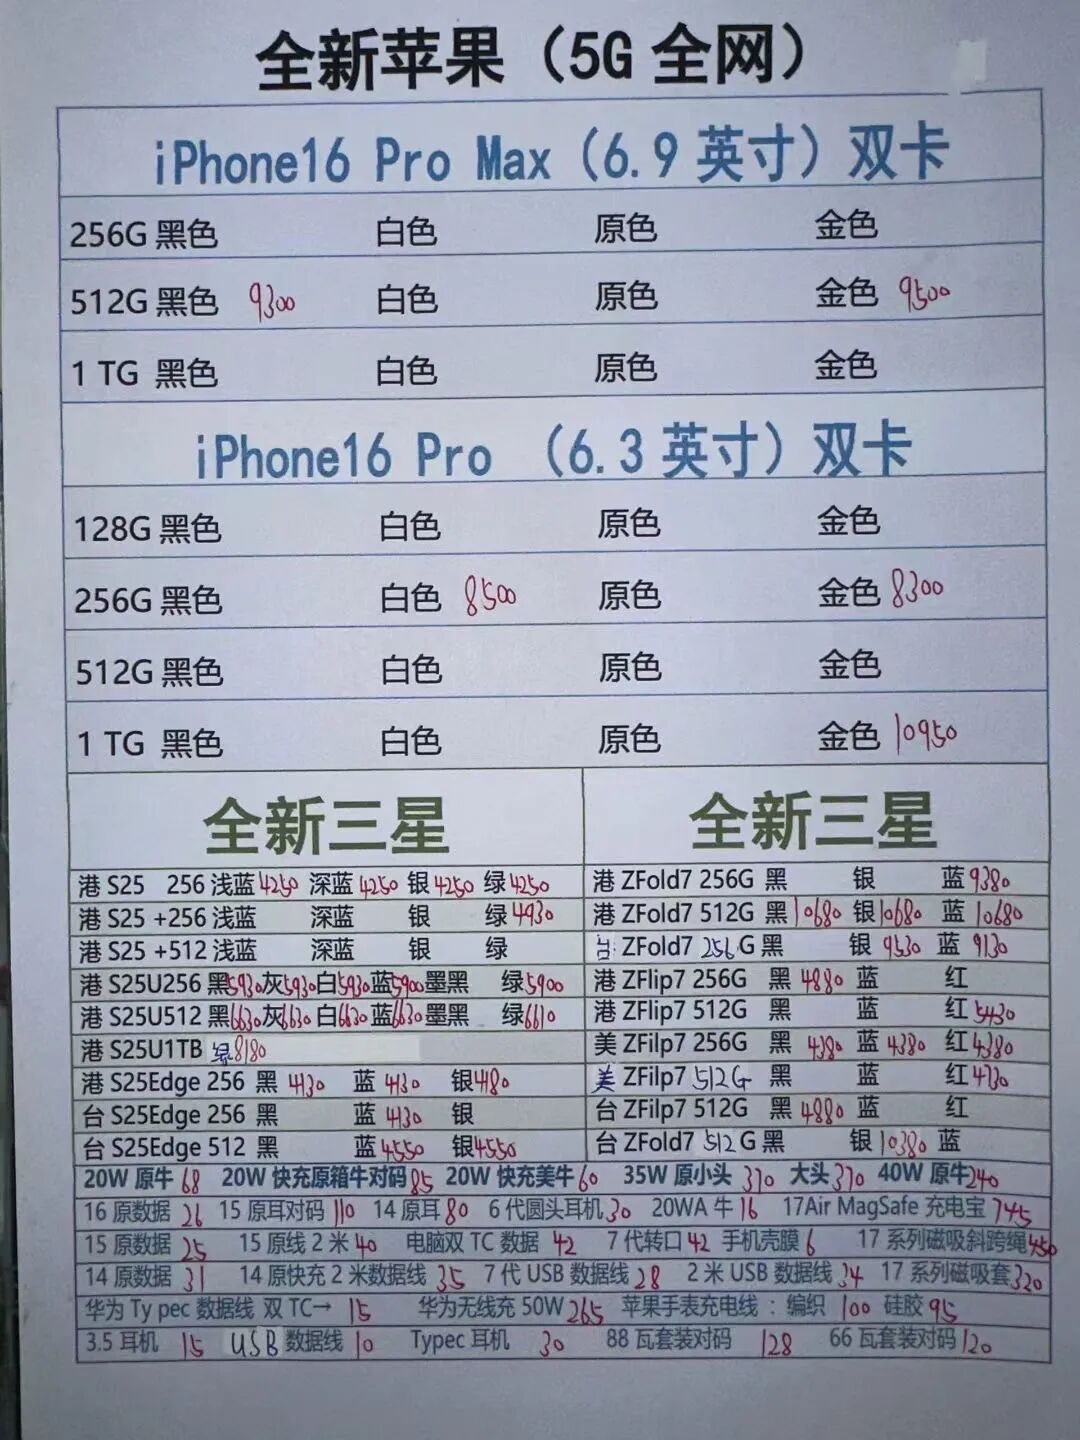 全新苹果（5G 全网）
iPhone16 Pro Max（6.9 英寸）双卡
256G 黑色 白色 原色 金色
512G 黑色 9300 白色 原色 金色 9500
1 TG 黑色 白色 原色 金色
iPhone16 Pro （6.3 英寸）双卡
128G 黑色 白色 原色 金色
256G 黑色 白色 8500 原色 金色 8300
512G 黑色 白色 原色 金色
1 TG 黑色 白色 原色 金色 10950
全新三星
港 S25 256 浅蓝 4250 深蓝 4250 银 4250 绿 4250
港 S25 +256 浅蓝 深蓝 银 绿 4930
港 S25 +512 浅蓝 深蓝 银 绿
港 S25U256 黑 5930 灰 5930 白 5930 蓝 5900 墨黑 绿 5900
港 S25U512 黑 6630 灰 6630 白 6630 蓝 6630 墨黑 绿 6610
港 S25U1TB 绿 8180
港 S25Edge 256 黑 4130 蓝 4130 银 4180
台 S25Edge 256 黑 蓝 4130 银
台 S25Edge 512 黑 蓝 4550 银 4550
全新三星
港 ZFold7 256G 黑 银 蓝 9380
港 ZFold7 512G 黑 10680 银 10680 蓝 10680
台 ZFold7 256 G 黑 银 9530 蓝 9130
港 ZFlip7 256G 黑 4880 蓝 红
港 ZFlip7 512G 黑 蓝 红 5430
美 ZFilp7 256G 黑 4380 蓝 4380 红 4380
美 ZFilp7 512G 黑 蓝 红 4730
台 ZFilp7 512G 黑 4880 蓝 红
台 ZFold7 512 G 黑 银 10380 蓝
20W 原牛 68 20W 快充原箱牛对码 85 20W 快充美牛 60 35W 原小头 370 大头 370 40W 原牛 240
16 原数据 26 15 原耳对码 110 14 原耳 80 6 代圆头耳机 30 20WA 牛 16 17Air MagSafe 充电宝 745
15 原数据 25 15 原线 2 米 40 电脑双 TC 数据 42 7 代转口 42 手机壳膜 6 17 系列磁吸斜跨绳 450
14 原数据 31 14 原快充 2 米数据线 35 7 代 USB 数据线 28 2 米 USB 数据线 34 17 系列磁吸套 320
华为 Ty pec 数据线 双 TC→ 15 华为无线充 50W 265 苹果手表充电线 ：编织 100 硅胶 95
3.5 耳机 15 USB 数据线 10 Typec 耳机 30 88 瓦套装对码 128 66 瓦套装对码 120